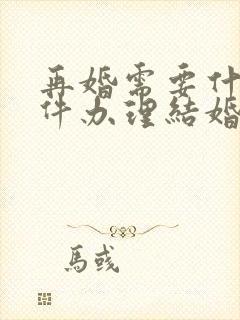 再婚需要什
件办理結婚
馬彧